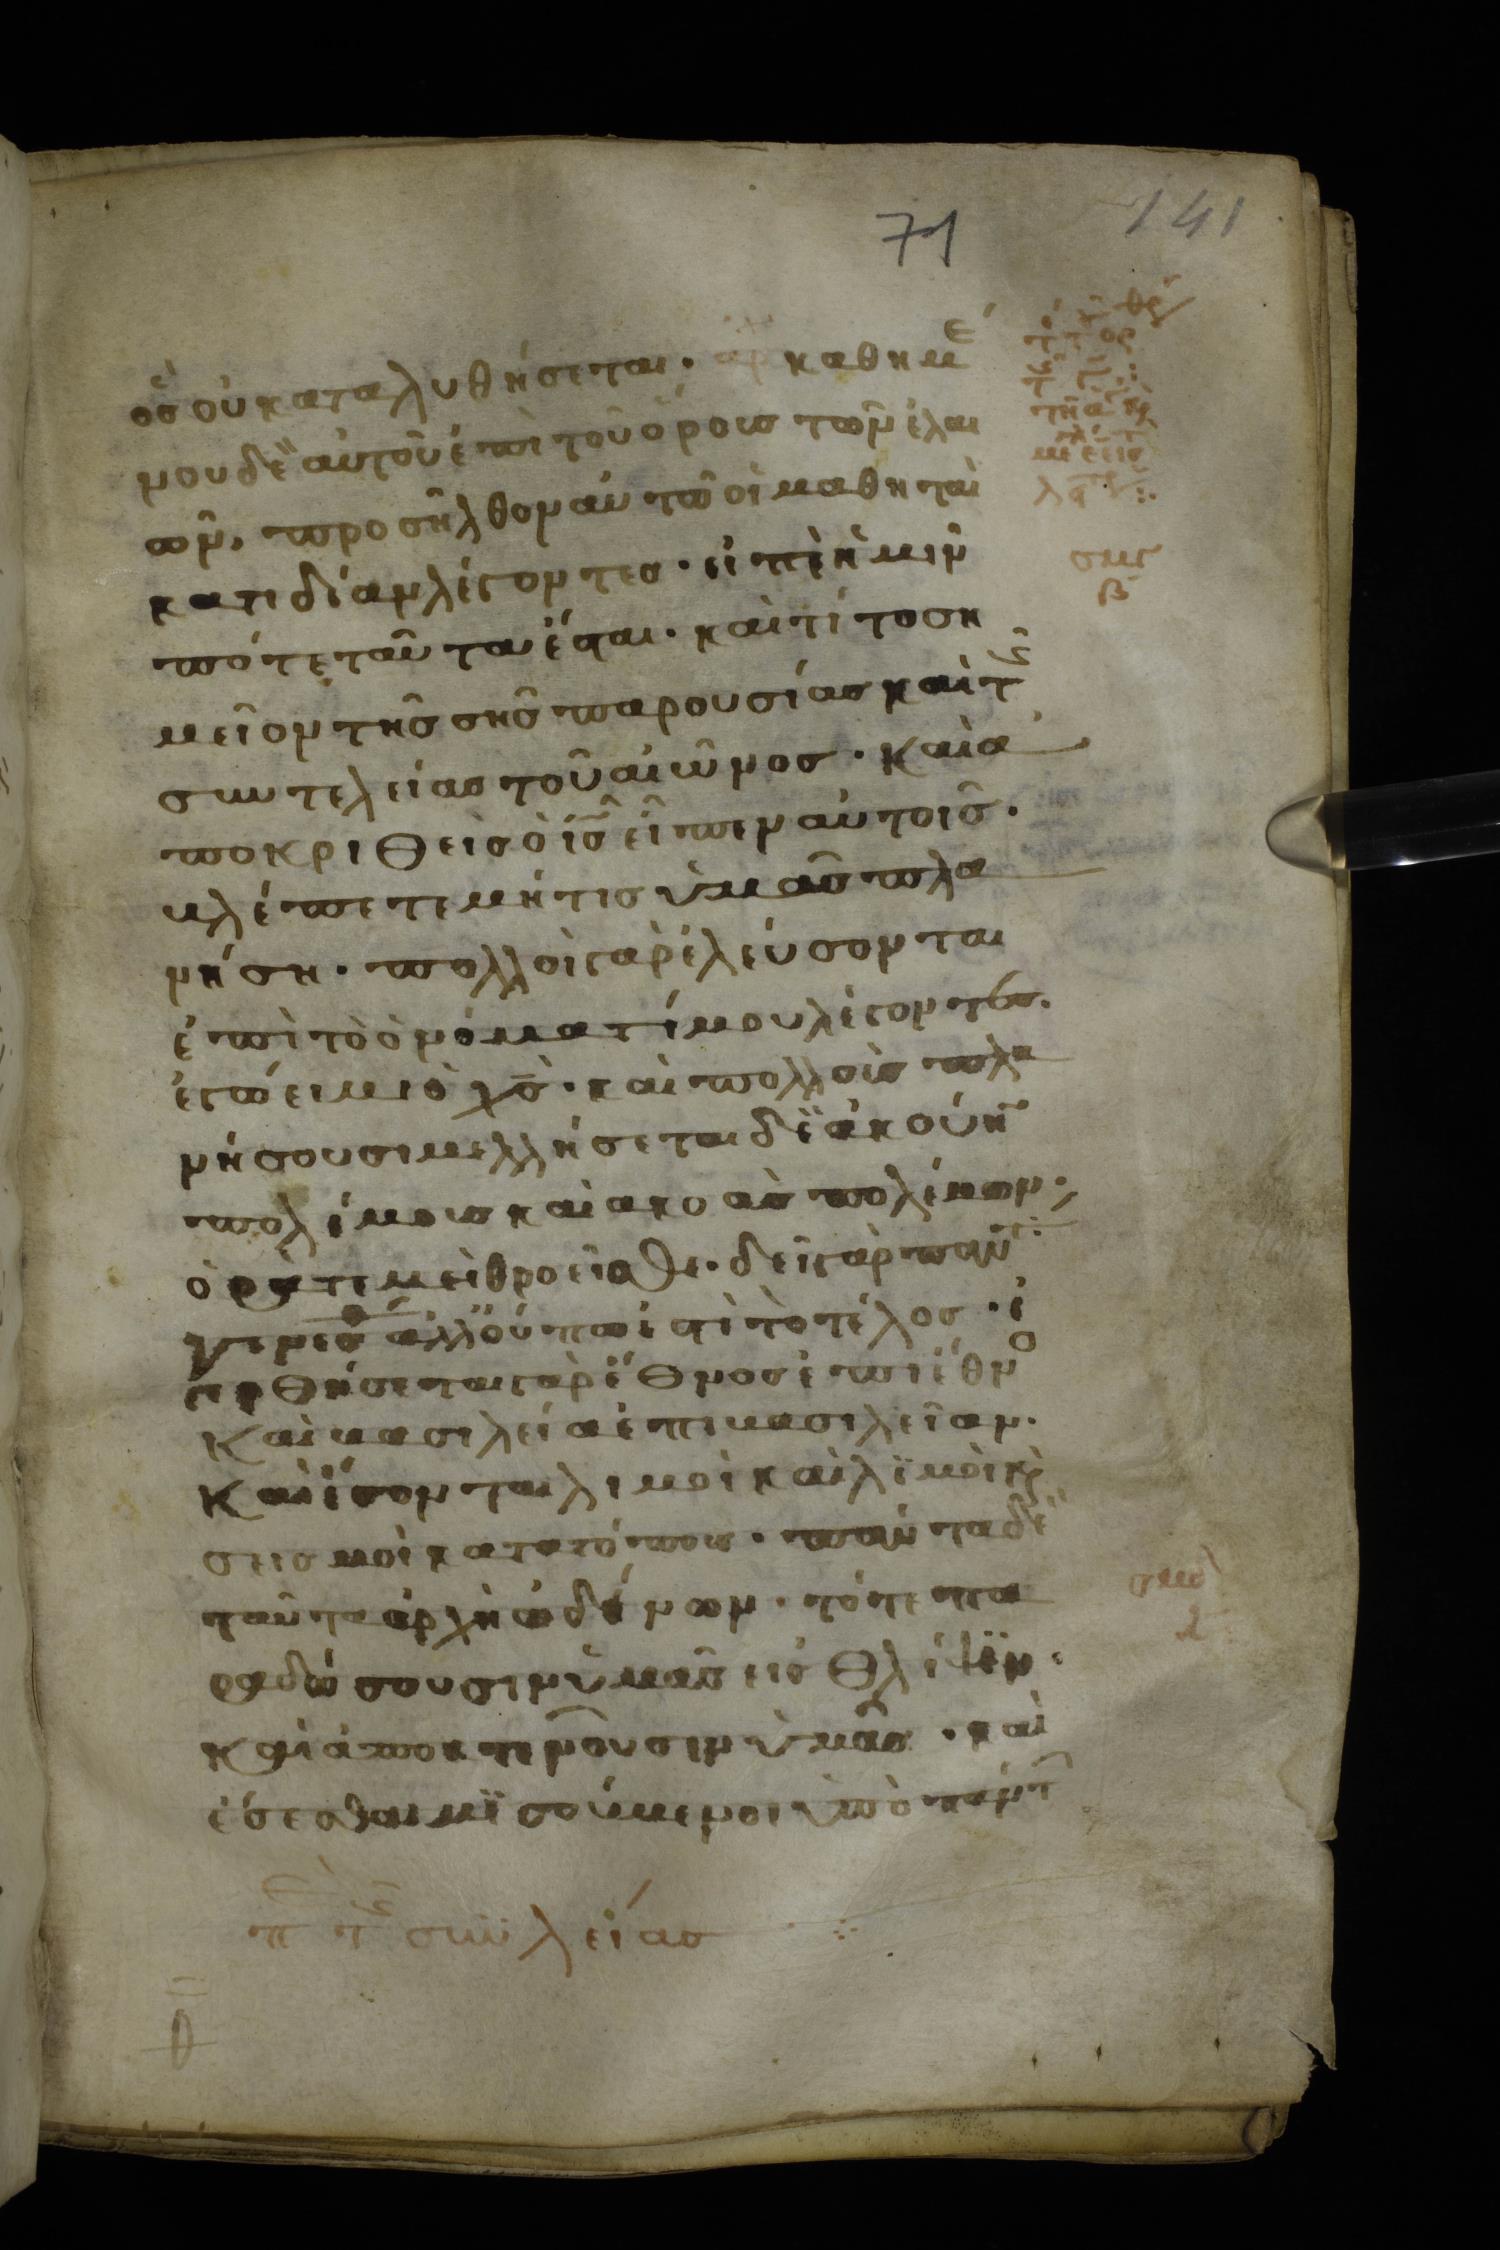 71
141
ὃσ οὐ καταλυθήσεται· αρ καθημε
νου δὲ αὐτοῦ ἐπι τοῦ ὄρους τῶν ἐλαι
ῶν, προσῆλθον αὐτῶ οἱ μαθηταὶ
κατιδίαν λέγοντες· εἰπὲ ἡμῖν
πότε ταῦτα ἔσται· καὶ τί το ση
μεῖον τῆς σῆς παρουσίας καὶ τῆς
συντελείας τοῦ αἰῶνος· καὶ ἀ
ποκριθεὶς ὁ ἰς εἶπεν αὐτοῖς·
βλέπετε μή τις ὑμᾶς πλα
νήση· πολλοὶ γὰρ ἐλεύσονται
ἐπὶ τὸ ὀνόματί μου λέγοντες·
ἐγώ ειμι ὁ χς· καὶ πολλοὺς πλα
νήσουσι μελλήσεται δὲ ἀκούην
πολέμους καὶ ακοὰς πολέμων·
ὁρᾶτε μεὶ θροεῖσθε· δεῖ γὰρ παντ
γενέσ ἀλλ οὔπω ἐστὶ τὸ τέλος· ἐ
γερθήσεται γὰρ ἔθνος ἐπι ἔθνο
Καὶ βασιλεία ἐπι βασιλεῖαν·
Καὶ ἔσονται λιμοὶ καὶ λϊμοὶ κὶ
σεισμοὶ κατα τόπους· πάντα δὲ
ταῦτα ἀρχὴ ὠδίνων· τότε πα
ραδώσουσιν ὑμᾶς εἰς θλίψϊν·
καὶ ἀποκτενοῦσιν ὑμᾶς· καὶ
ἔσεσθαι μϊσούμενοι ὑπὸ πάντ